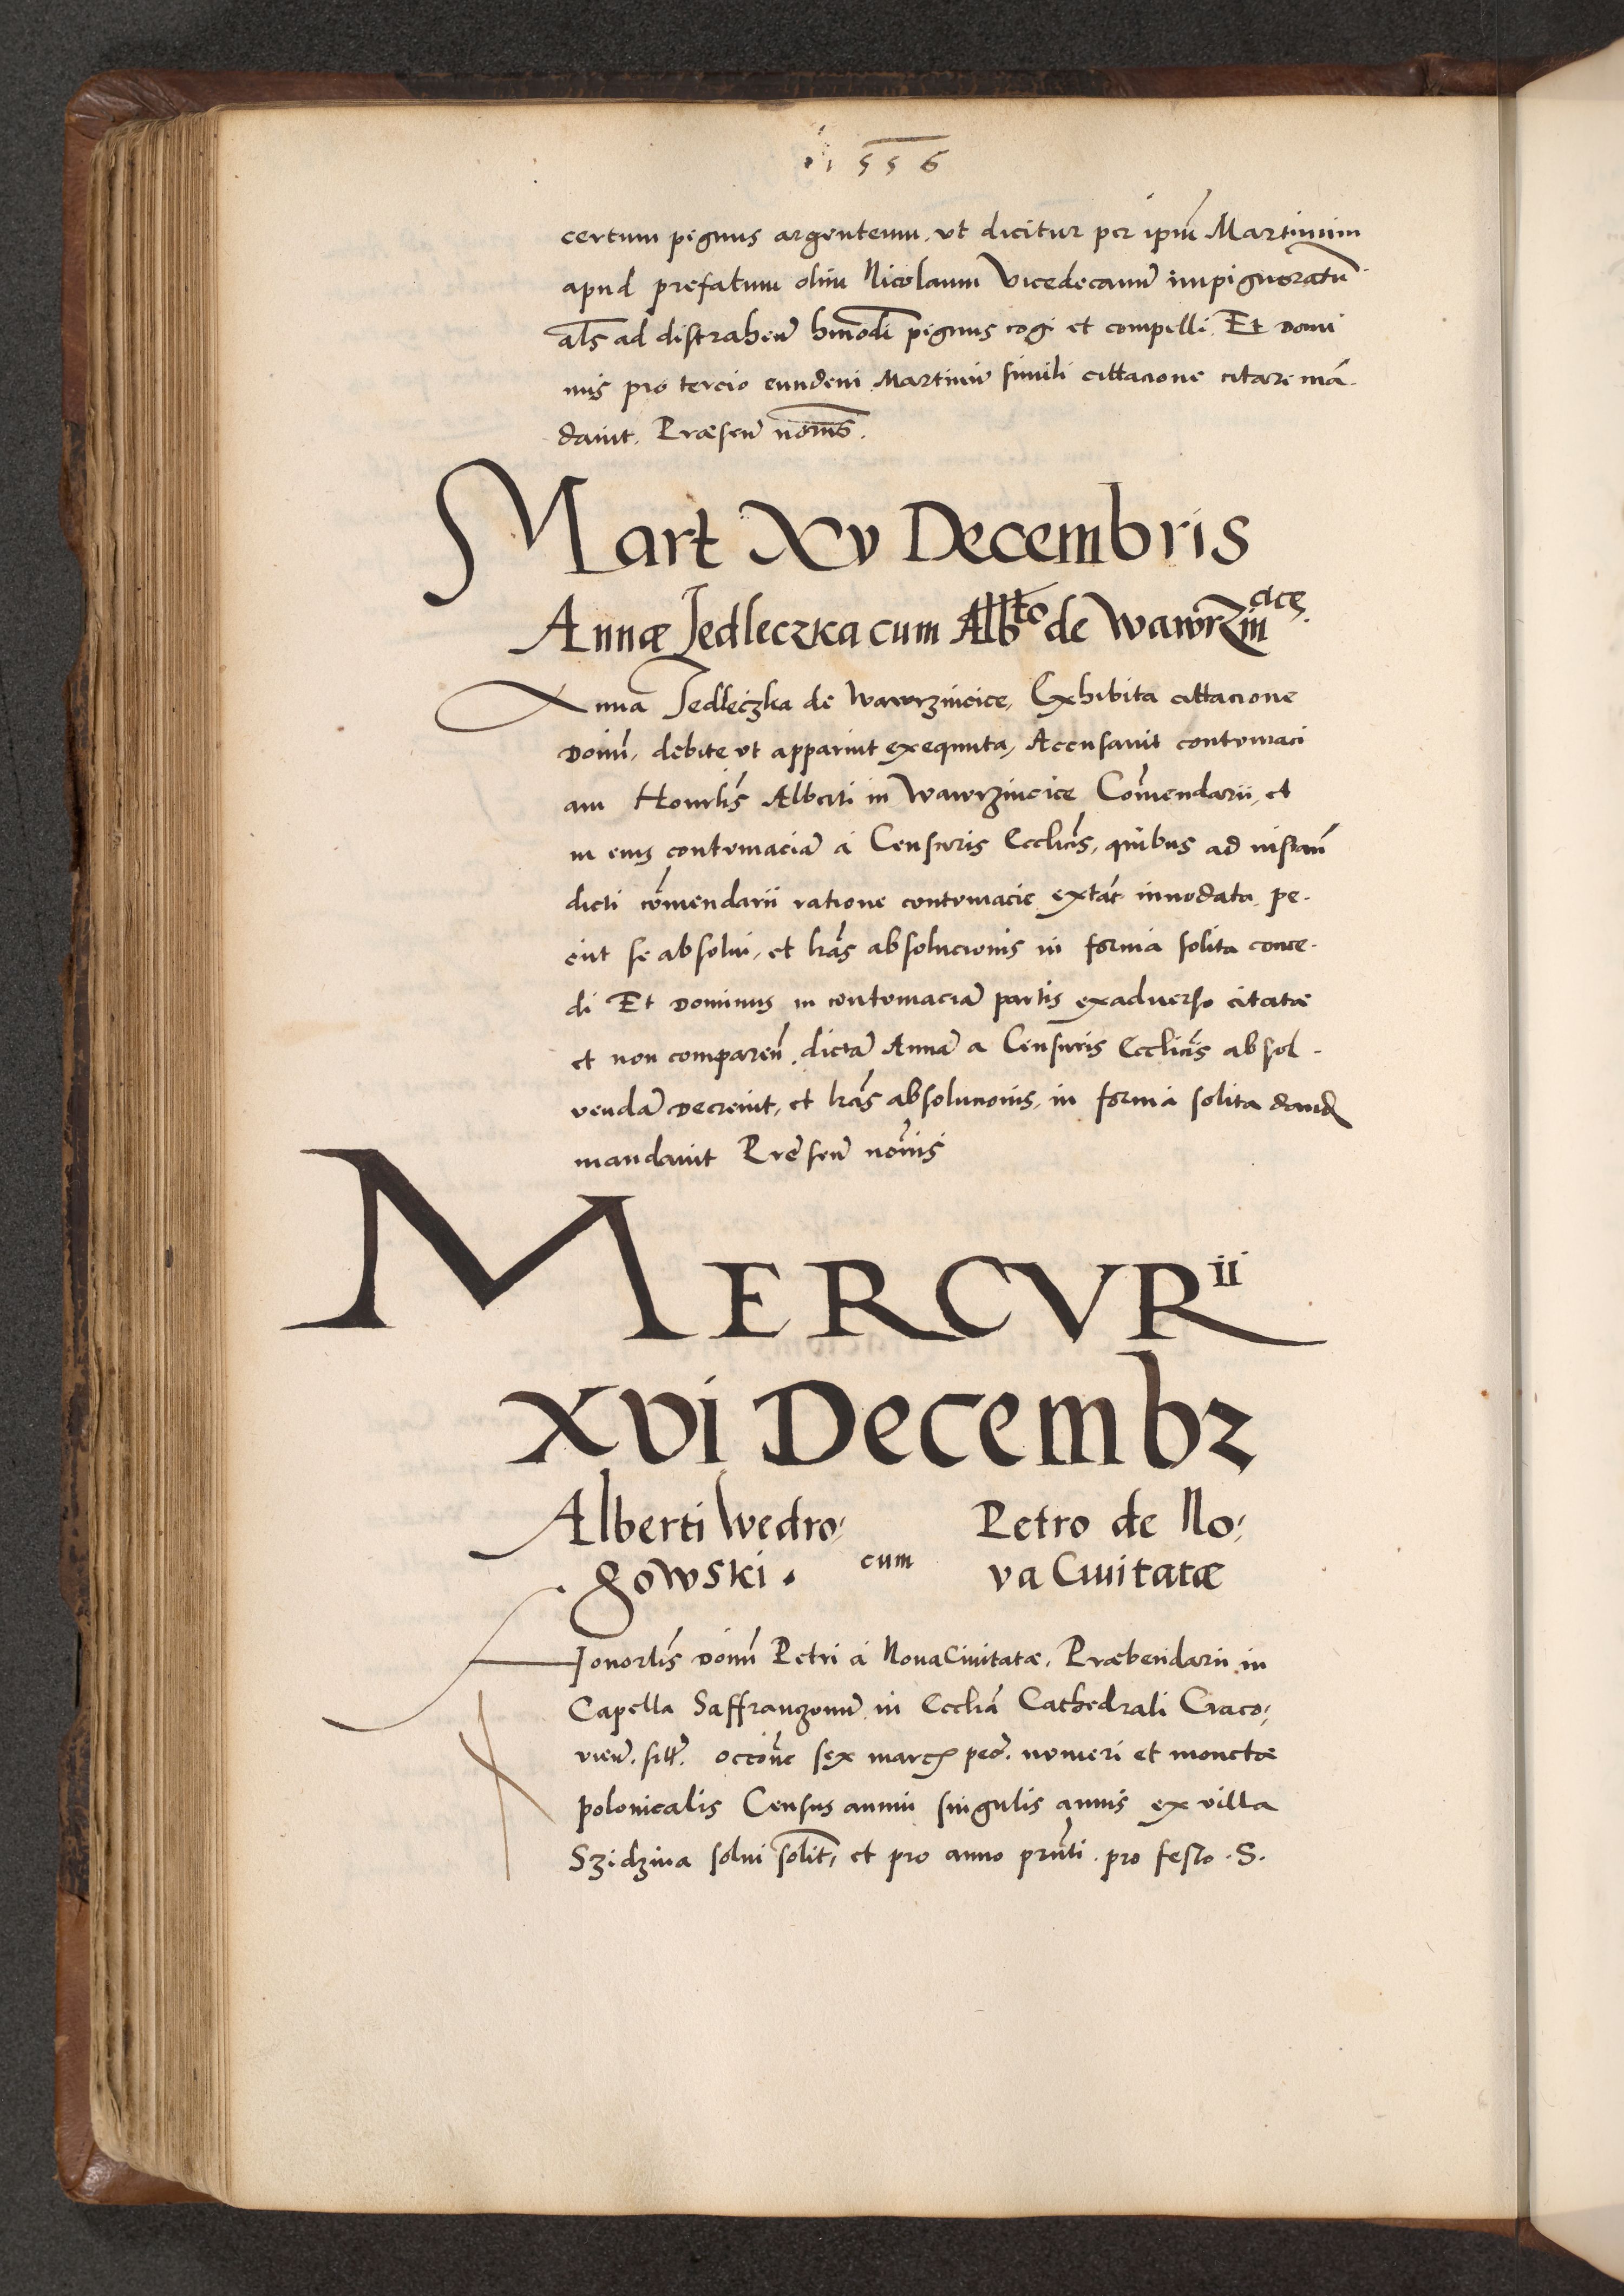 1556
certum pignus argenteum, ut dicitur per ipm̄ Martinum
apud prefatum olim Nicolaum Vicedecanū impignoratū
al̄s ad distrahen̄ hm̄odi pignus cogi et compelli. Et domi
nus pro tercio eundem Martinū simili cittacione citare mā-
davit. Præsen̄ nōrus.
Mart XV Decembris
Annæ Jedleczka cum Alb̄to de Wawrzincice
Anna Jedleczka de Wawrzincice, Exhibita cittacione
Domī, debite ut apparuit exequuta, Accusavit contumaci
am Honrl̄is Alberti in Wawrzincice Com̄endarii, et
in eius contumaciā à Censuris Eccl̄icīs, quibus ad instan̄
dicti com̄endarii ratione contumacie extāt innodata, pe-
ciit se absolui, et lr̄as absolucionis in forma solita conce-
di Et Dominus in contumaciā partis exadverso citatæ
et non comparen̄, dictā Annā a Censuris Eccl̄icīs absol-
vendā decreuit, et lr̄as absolucionis, in forma solita dand
mandauit Presen̄ nōriis
MERCVRii
XVI Decembr
Alberti Wedro: cum Petro de No:
gowski. va Civitatæ
Honorl̄is Domī Petri à Noua Ciuitatæ, Præbendarii in
Capella Saffranczonū in Eccl̄ia Cathedrali Craco:
vien̄. sitt̄. occōne sex marcȩ pec̄. numeri et monetæ
polonicalis Census annui singulis annis ex villa
Szidzina solui solit, et pro anno prn̄ti pro festo S.